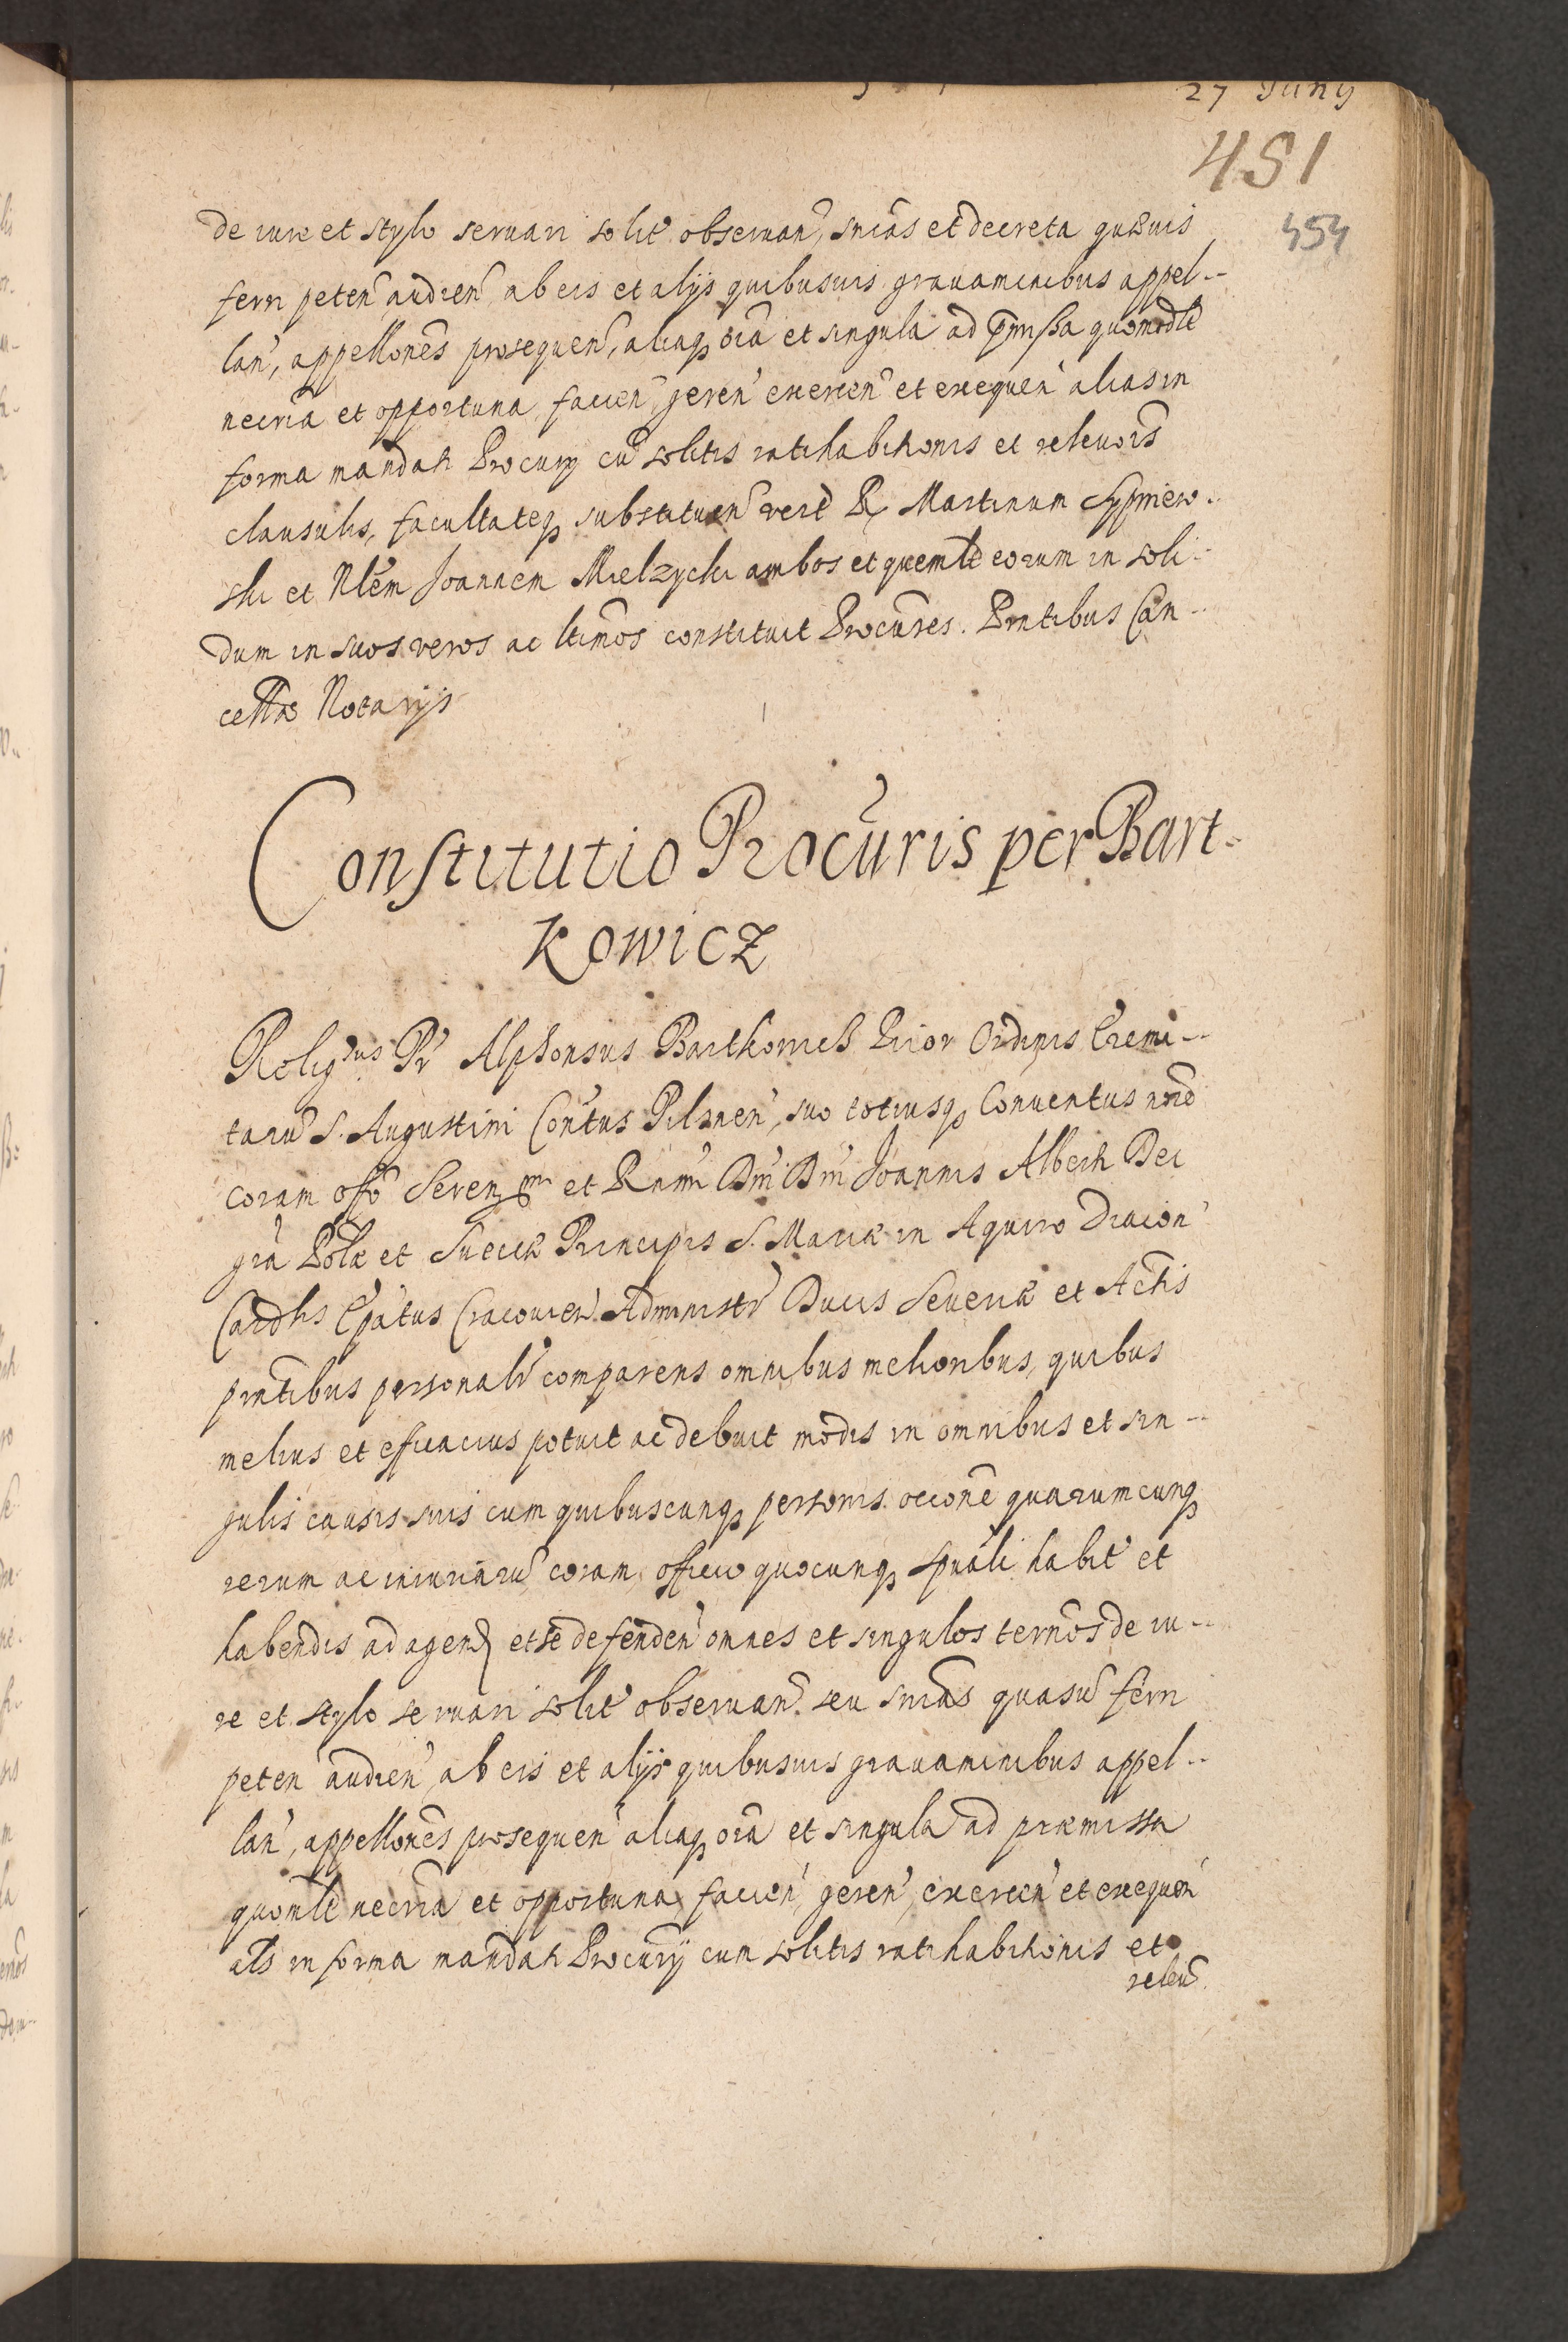 27 Junij
451
454
de iure et stylo seruari solit observan, snias et decreta quæuis
ferri peten audien ab eis et alijs quibusuis grauaminibus appel--
lan, appellones prosequen, aliaq oia et singula ad pmissa quomodlt
necria et opportuna facien, geren exercen et exequen alias in
forma mandati Procurij cu solitis ratihabitionis et releuois
clausulis, facultateq substituen vert R Martinum Sypniew--
ski et Nlem Joannem Mielzycki ambos et quemlt eorum in soli--
dum in suos veros ac ltimos constituit Procures. Pntibus Can--
cellæ Notarijs
Constitutio Procuris per Bart-
kowicz
Religsus Pr Alphonsus Bartkowicz Prior Ordinis Eremi--
taru S. Augustini Contus Pilznen, suo totiusq Conuentus noie
coram offo Serenssmi et Rnmi Dni Dni Joannis Alberti Dei
gra Polæ et Sueciæ Principis S. Mariæ in Aquiro Diacon
Cardlis Epatus Cracouien Administr Ducis Seueriæ et Actis
pntibus personalr comparens omnibus melioribus, quibus
melius et efficacius potuit ac debuit modis in omnibus et sin--
gulis causis suis cum quibuscunq personis occone quarumcunq
rerum ac iniuriaru coram officio quocunq spuali habit et
habendis ad agen et se defenden omnes et singulos ternos de iu--
re et stylo seruari solit obseruan seu snias quasu ferri
peten audien ab eis et alijs quibusuis grauaminibus appel--
lan, appellones prosequen aliaq oia et singula ad præmissa
quomlt necria et opportuna, facien, geren, exercen et exequen
als in forma mandati Procurij cum solitis ratihabitionis et
releu